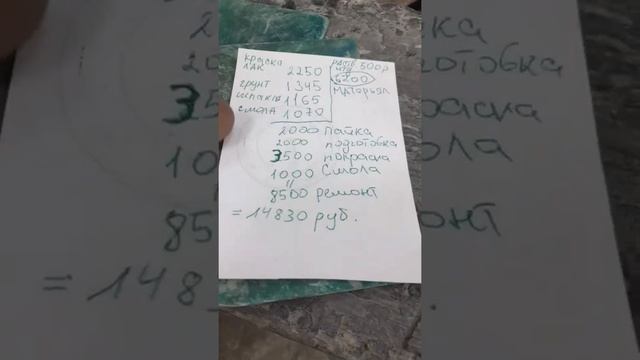 краска 500р
ЛАК 2250
грунт 1345 Маторьял
1165
смола 1070
2000 Пайка
2000 подготовка
3500 покраска
1000 Смола
"
8500 ремонт
= 14830 руб.